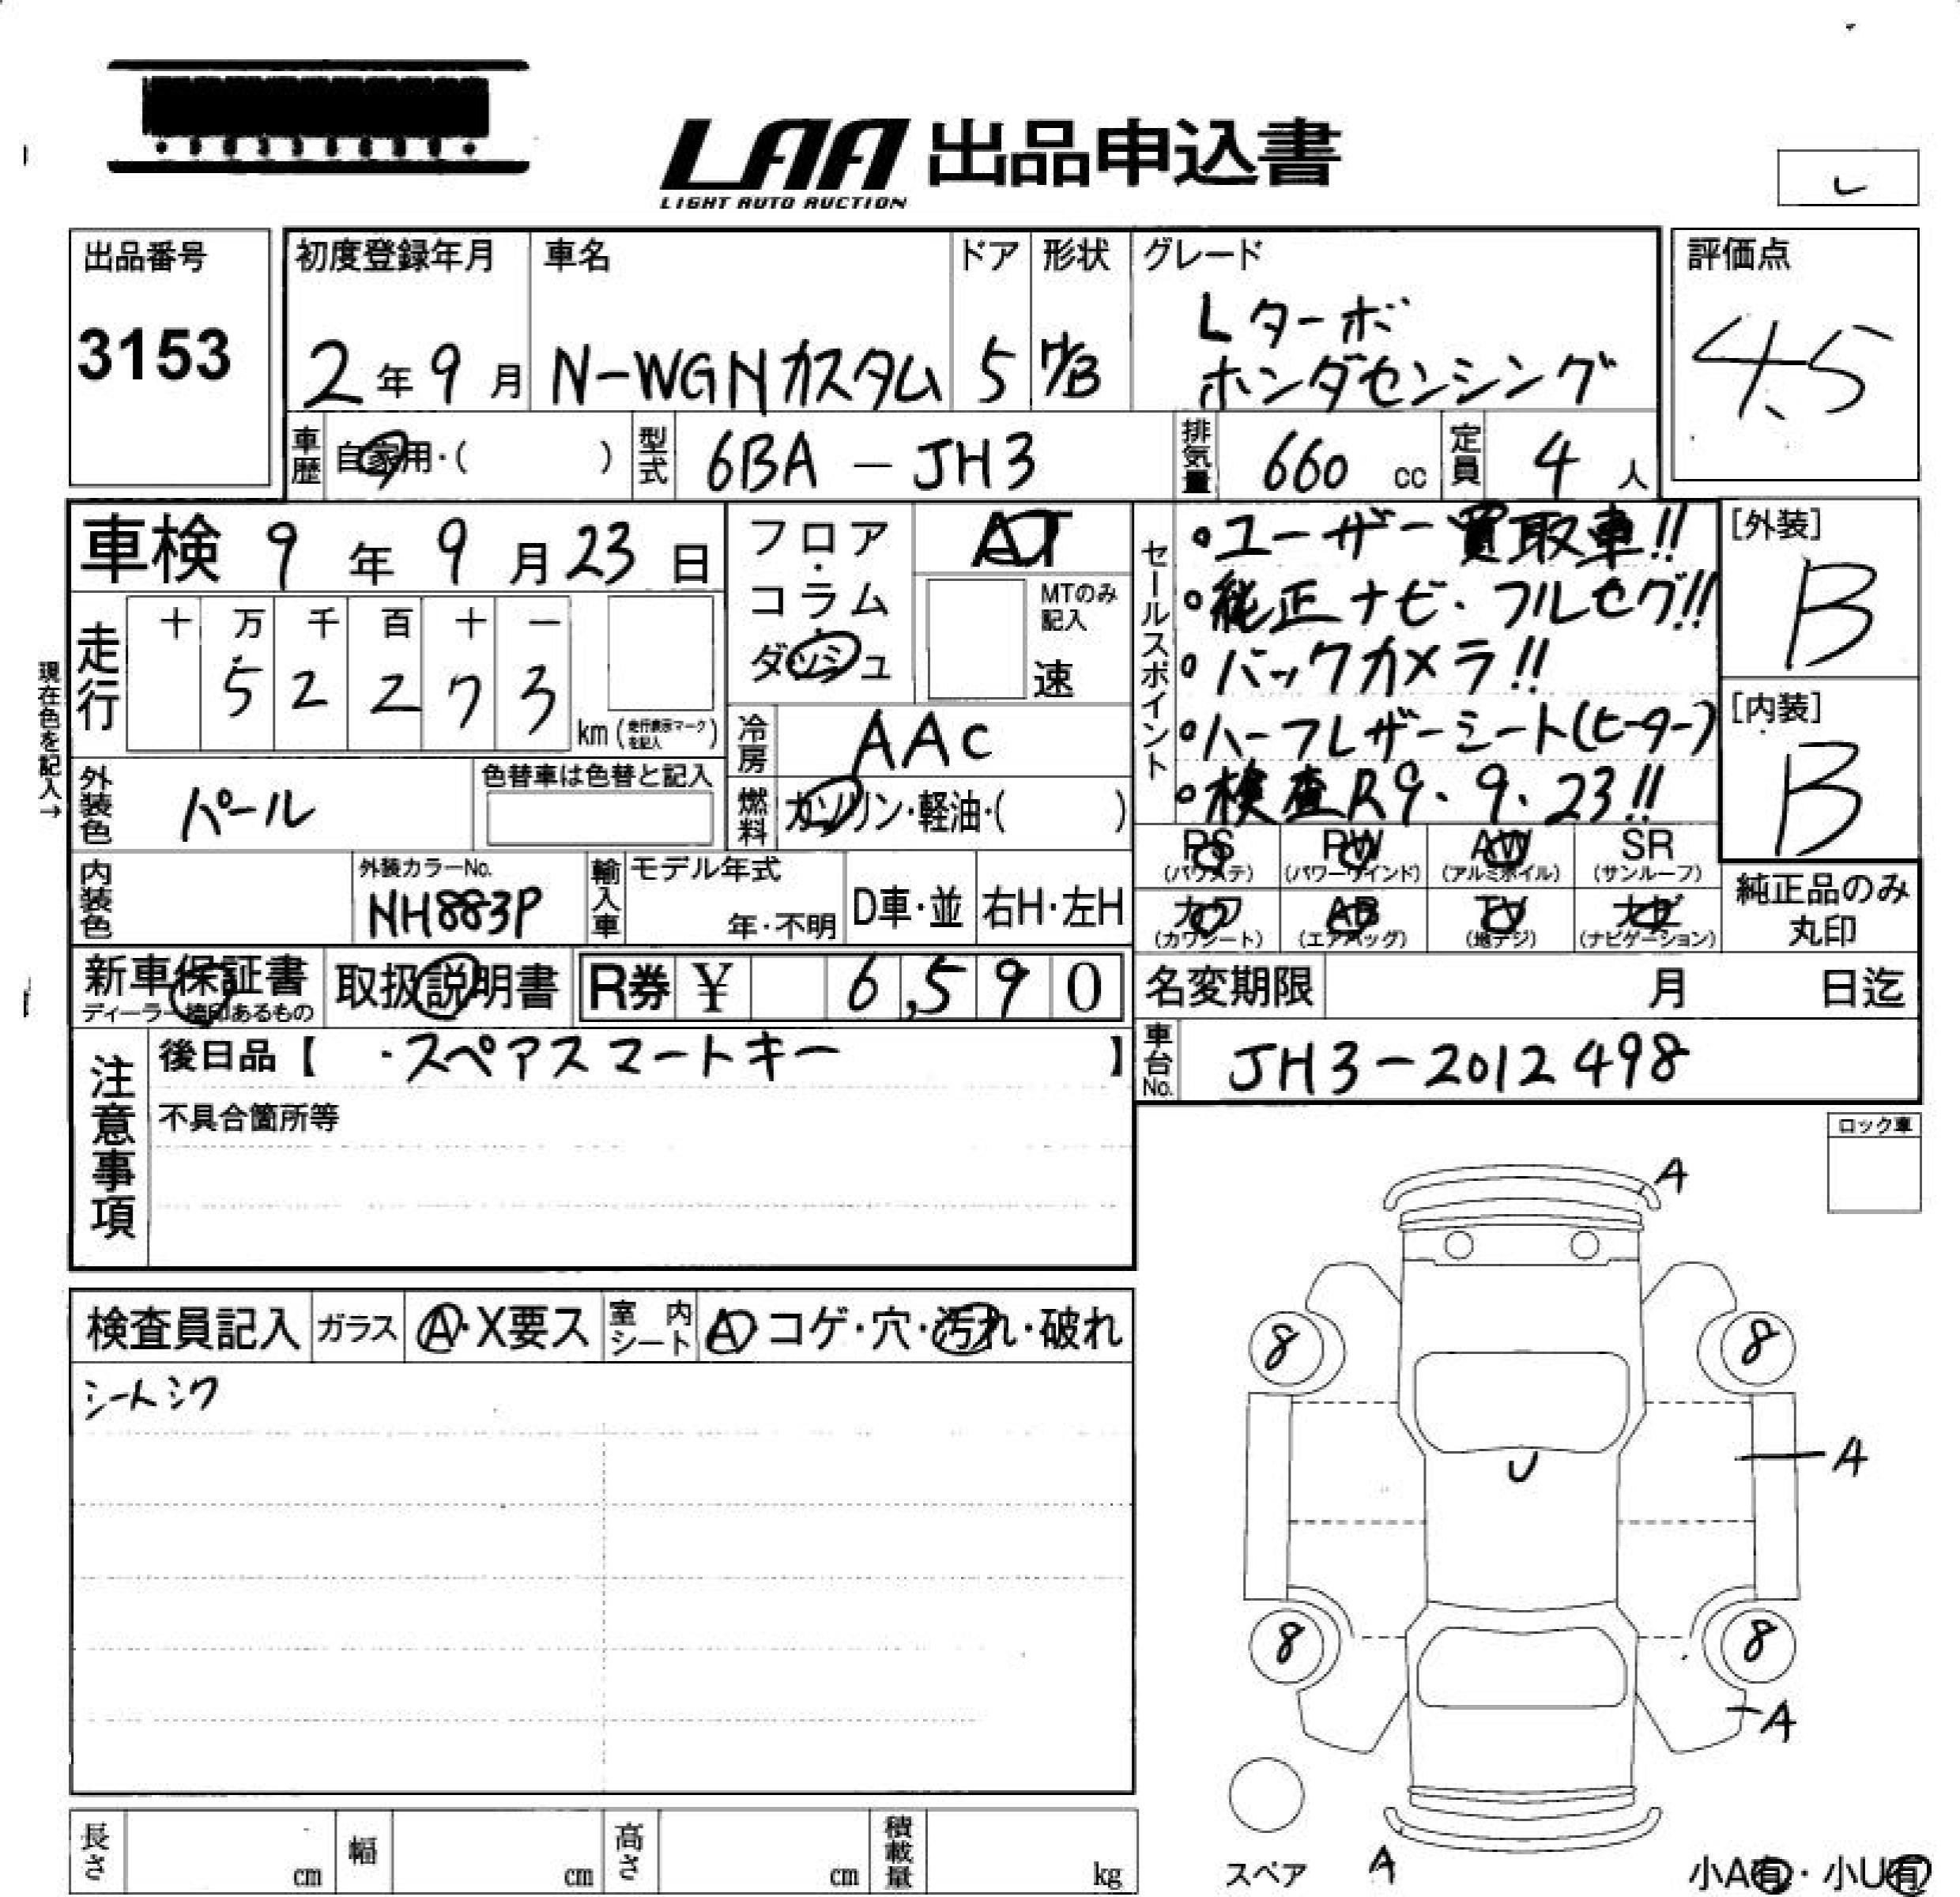 LAA 出品申込書
LIGHT AUTO AUCTION
出品番号
3153
初度登録年月
2年9月
車名
N-WGNカスタム
ドア
5
形状
H/B
グレード
Lターボ
ホンダセンシング
評価点
4.5
車歴
自家用・( )
型式
6BA - JH3
排気量
660 cc
定員
4人
車検 9年9月23日
フロア・
コラム・
ダッシュ
AT
MTのみ
記入
速
セールスポイント
•ユーザー買取車!!
•純正ナビ・フルセグ!!
•バックカメラ!!
•ハーフレザーシート(ヒーター)
•検査R9.9.23!!
[外装]
B
[内装]
B
走行
十 万 千 百 十 一
5 2 2 7 3
km(走行表示マークを記入)
現在色を記入→
冷房
AAC
外装色
パール
色替車は色替と記入
燃料
ガソリン・軽油・( )
PS PW AW SR
(パワステ) (パワーウインド) (アルミホイル) (サンルーフ)
カワ AB TV ナビ
(カワシート) (エアバッグ) (地デジ) (ナビゲーション)
純正品のみ
丸印
内装色
外装カラーNo.
NH883P
輸入車
モデル年式
年・不明
D車・並
右H・左H
新車保証書
ディーラー捺印あるもの
取扱説明書
R券 ¥ 6,590
名変期限 月 日迄
車台No.
JH3-2012498
注意事項
後日品【 ・スペアスマートキー 】
不具合箇所等
ロック車
検査員記入
ガラス
A・X要ス
室内シート
A・コゲ・穴・汚れ・破れ
シートシワ
A
8 8
A
U
8 8
A
A
スペア
小A有・小U有
長さ cm
幅 cm
高さ cm
積載量 kg